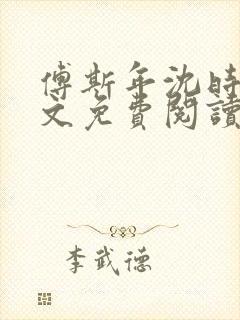 傅斯年沈時
文免費閱讀
李武德